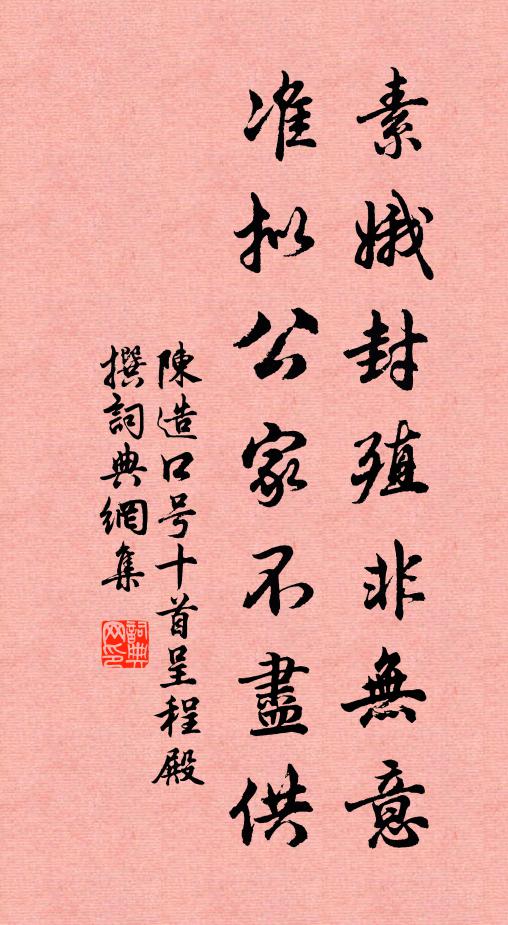 素娥封殖非無意
准拟公家不盡供
陳造口号十首呈程殿
撰詞典網集
詞典网印